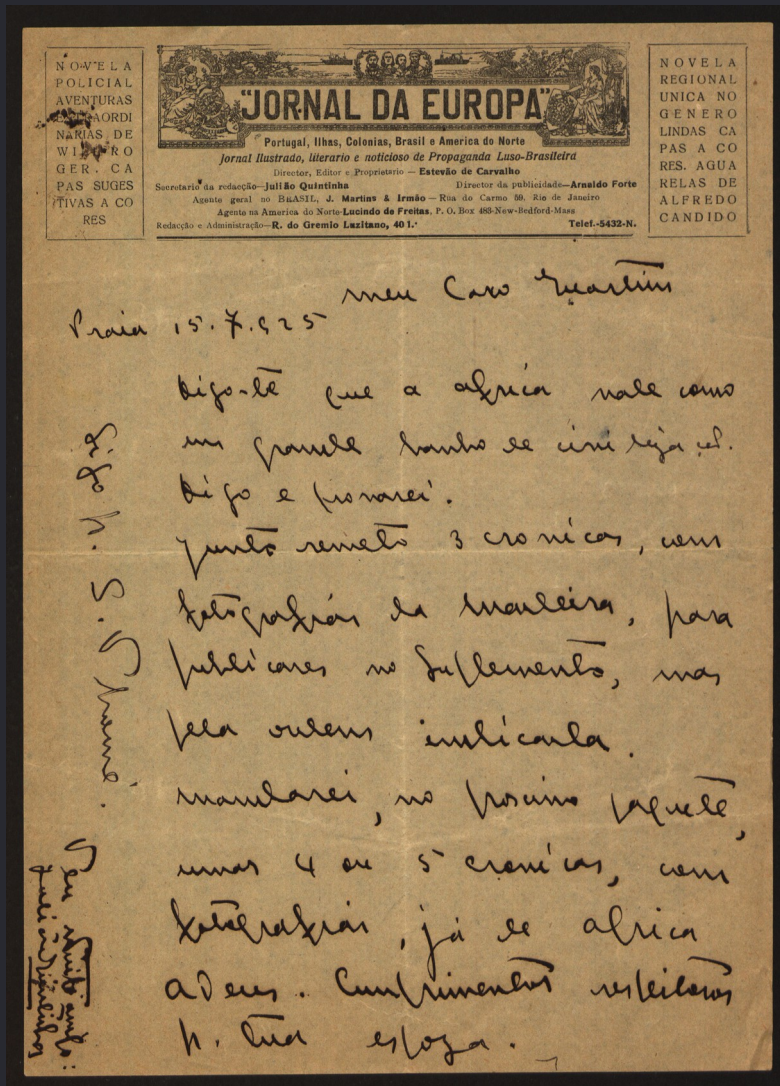 NOVELA
POLICIAL
AVENTURAS
DE
GER. CA
PAS SUGES
TIVAS A CO
RES
"JORNAL DA EUROPA"
Portugal, Ilhas, Colonias, Brasil e America do Norte
Jornal Ilustrado, literario e noticioso de Propaganda Luso-Brasileira
Director, Editor e Proprietario — Estevão de Carvalho
Secretario da redacção—Julião Quintinha Director da publicidade—Arnaldo Forte
Agente geral no BRASIL, J. Martins & Irmão — Rua do Carmo 59. Rio de Janeiro
Agente na America do Norte-Lucindo de Freitas, P. O. Box 483-New-Bedford-Mass
Redacção e Administração—R. do Gremio Luzitano, 40 1.º Telef.-5432-N.
NOVELA
REGIONAL
UNICA NO
GENERO
LINDAS CA
PAS A CO
RES. AGUA
RELAS DE
ALFREDO
CANDIDO
meu Caro Martins
Praia 15.7.925
Digo-te que a africa vale como
um grande banho de
Digo e provarei.
Junto remeto 3 cronicas, com
fotografias da Madeira, para
publicares no Suplemento, mas
pela ordem indicada.
mandarei, no proximo paquete,
umas 4 ou 5 cronicas, com
fotografias, já de africa
Adeus. Cumprimentos respeitosos
p. tua espoza.
Sigo p. S. Thomé.
Teu muito amigo:
Julião Quintinha